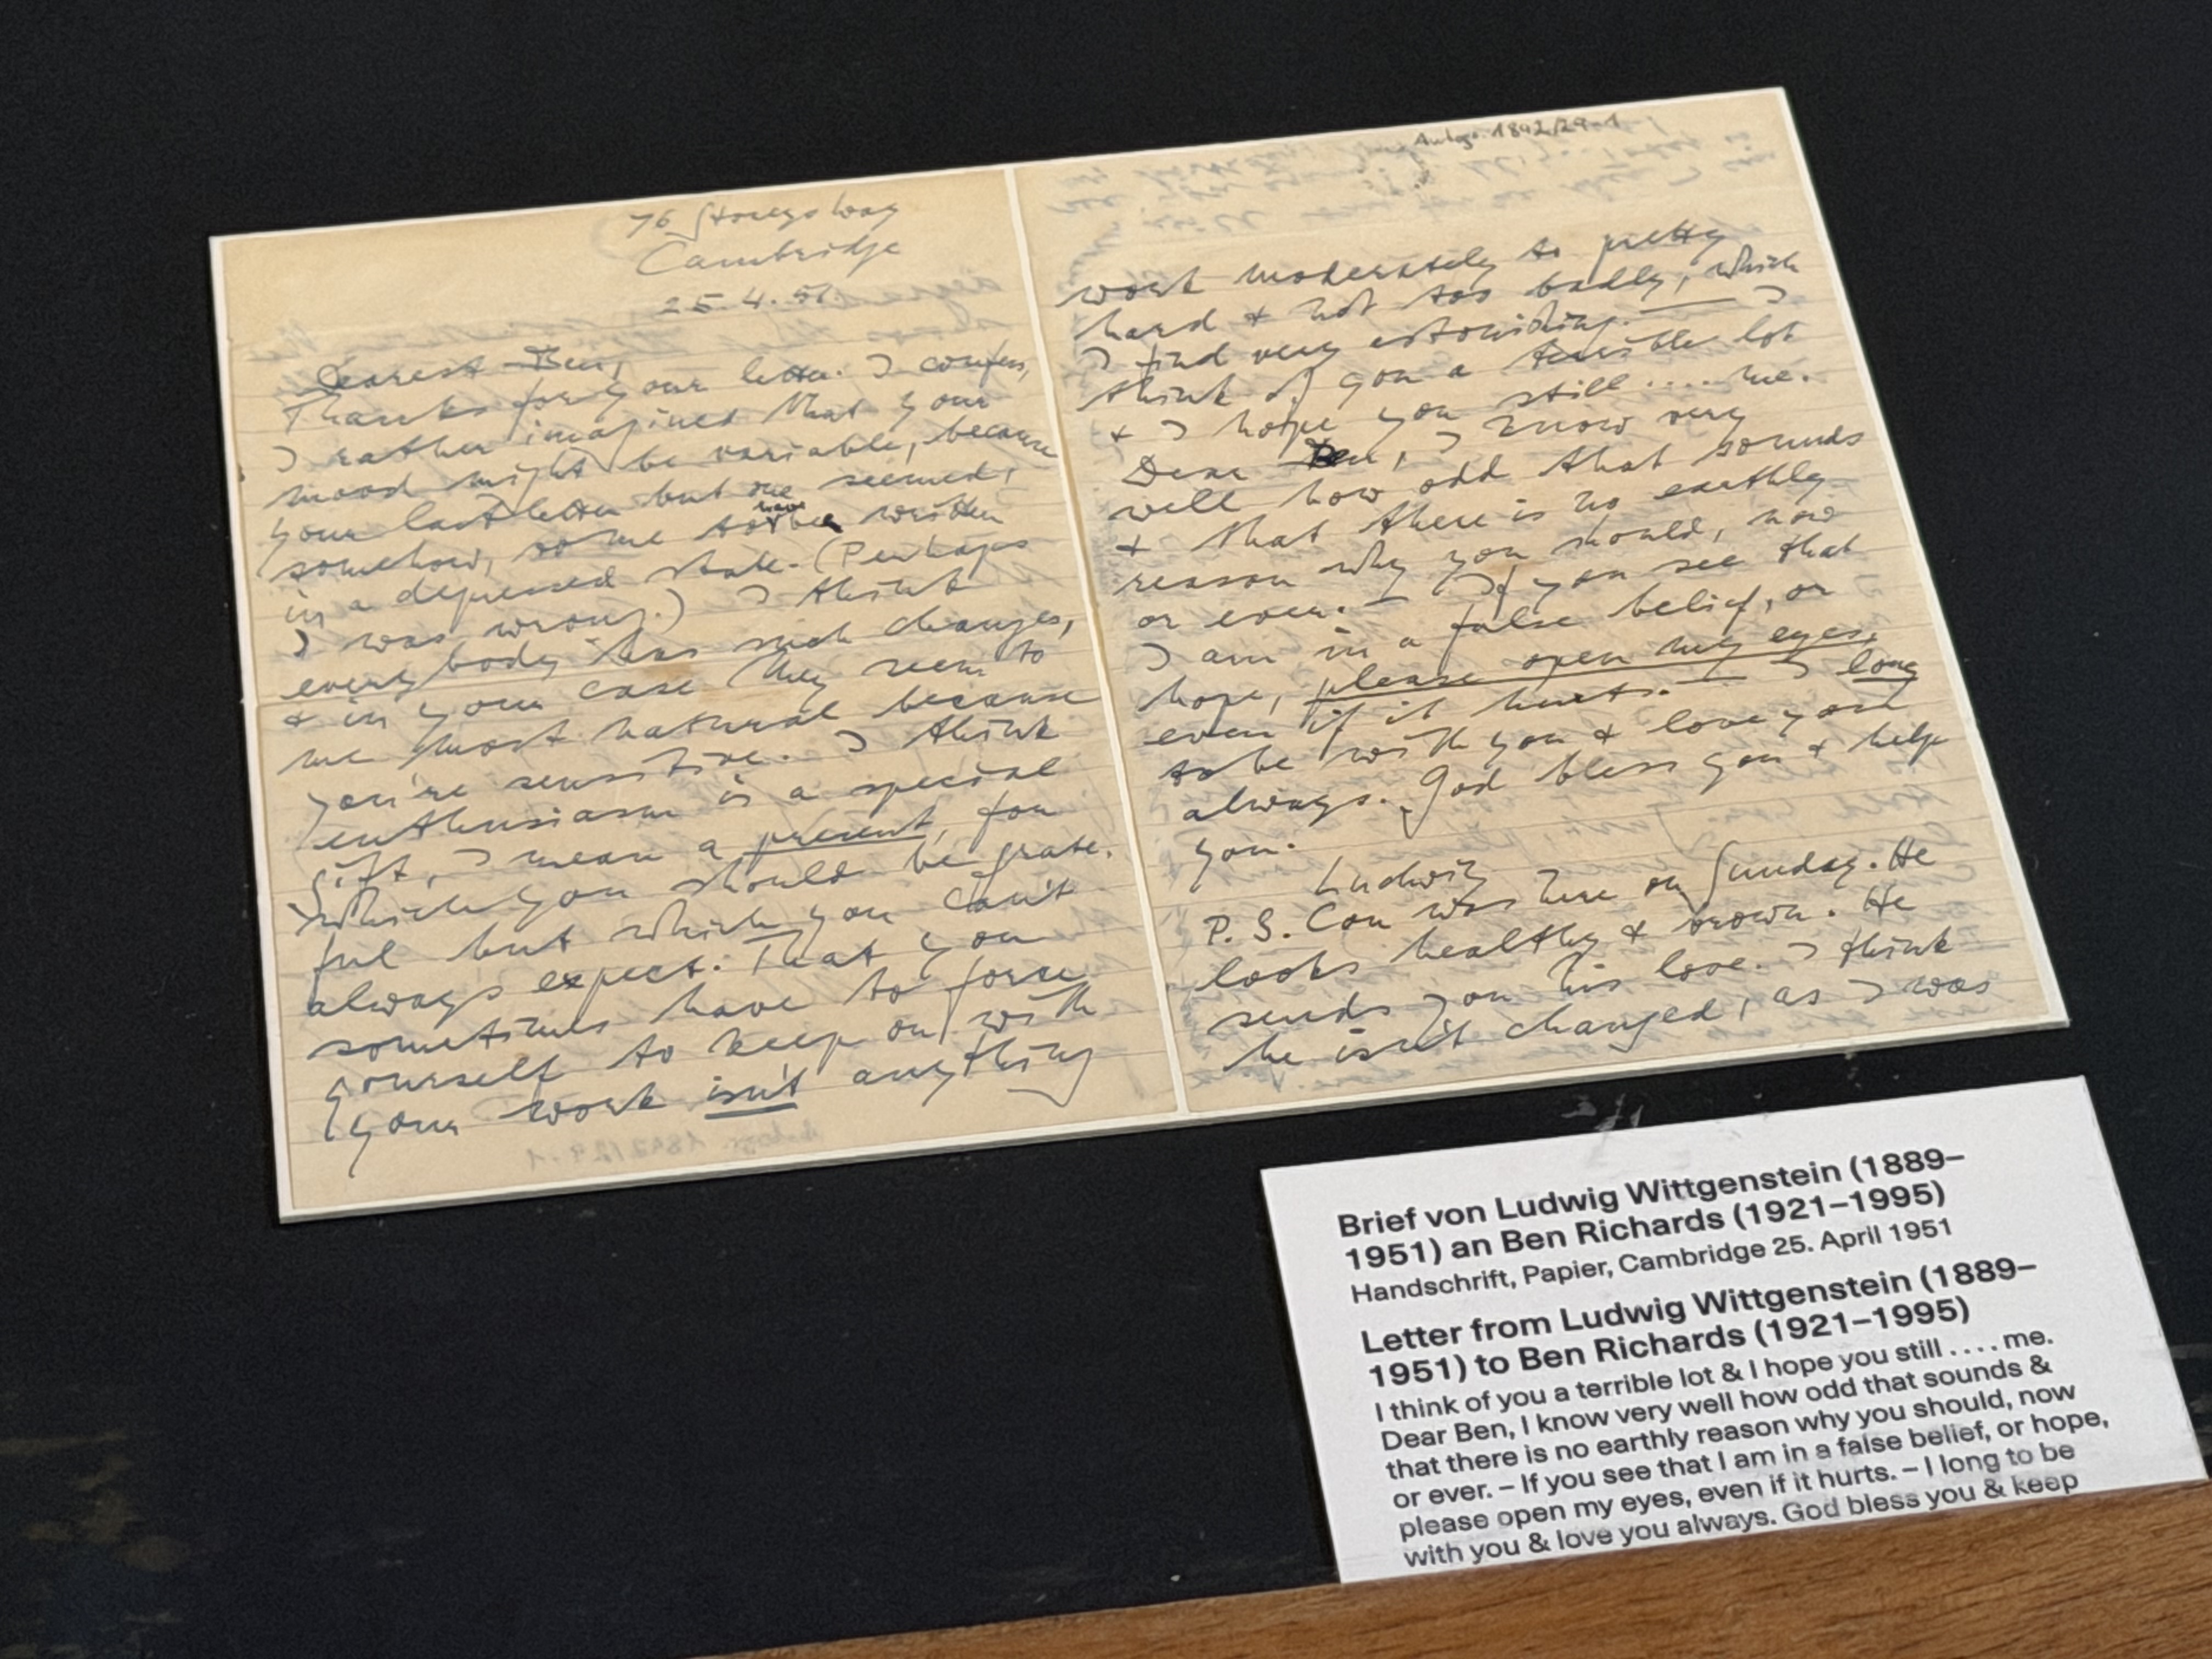 76 Storeys Way
Cambridge
25.4.51.
Dearest Ben,
Thanks for your letter. I confess,
I rather imagined that your
mood might be variable, because
your last letter but one seemed,
somehow, to me to have been written
in a depressed state. (Perhaps
I was wrong.) I think
everybody has such changes,
& in your case they seem to
me most natural because
you're sensitive. I think
enthusiasm is a special
gift, I mean a present, for
which you should be grate-
ful but which you can't
always expect. That you
sometimes have to force
yourself to keep on with
your work isn't anything
Autogr. 1892/29-1
work moderately to pretty
hard & not too badly, which
I find very astonishing. — I
think of you a terrible lot
& I hope you still .... me.
Dear Ben, I know very
well how odd that sounds
& that there is no earthly
reason why you should, now
or ever. — If you see that
I am in a false belief, or
hope, please open my eyes,
even if it hurts. — I long
to be with you & love you
always. God bless you & help
you.
Ludwig
P.S. Con was here on Sunday. He
looks healthy & brown. He
sends you his love. I think
he isn't changed, as I was
Brief von Ludwig Wittgenstein (1889–
1951) an Ben Richards (1921–1995)
Handschrift, Papier, Cambridge 25. April 1951
Letter from Ludwig Wittgenstein (1889–
1951) to Ben Richards (1921–1995)
I think of you a terrible lot & I hope you still .... me.
Dear Ben, I know very well how odd that sounds &
that there is no earthly reason why you should, now
or ever. – If you see that I am in a false belief, or hope,
please open my eyes, even if it hurts. – I long to be
with you & love you always. God bless you & keep